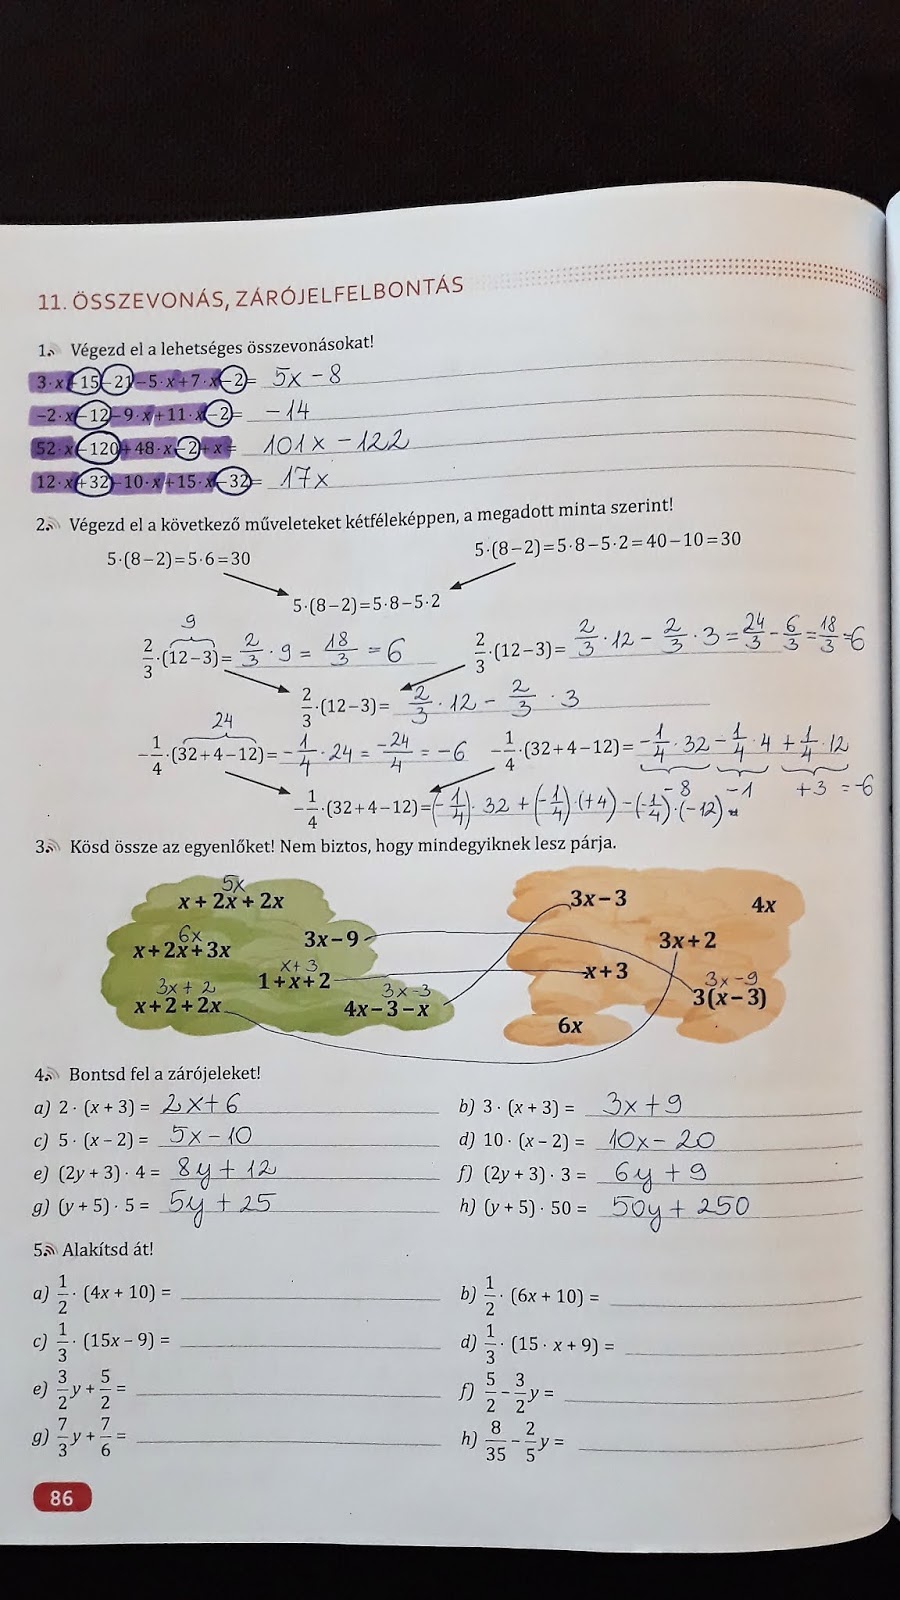 11. ÖSSZEVONÁS, ZÁRÓJELFELBONTÁS
1. Végezd el a lehetséges összevonásokat!
3·x+15−21−5·x+7·x−2= 5x − 8
−2·x−12−9·x+11·x−2= −14
52·x−120+48·x−2+x= 101x − 122
12·x+32−10·x+15·x−32= 17x
2. Végezd el a következő műveleteket kétféleképpen, a megadott minta szerint!
5·(8−2)=5·6=30 5·(8−2)=5·8−5·2=40−10=30
5·(8−2)=5·8−5·2
9
2/3·(12−3)= 2/3 · 9 = 18/3 = 6 2/3·(12−3)= 2/3 · 12 − 2/3 · 3 = 24/3 − 6/3 = 18/3 = 6
2/3·(12−3)= 2/3 · 12 − 2/3 · 3
24
−1/4·(32+4−12)= −1/4 · 24 = −24/4 = −6 −1/4·(32+4−12)= −1/4 · 32 − 1/4 · 4 + 1/4 · 12
−8 −1 +3 = −6
−1/4·(32+4−12)= (−1/4) · 32 + (−1/4) · (+4) − (−1/4) · (−12)
3. Kösd össze az egyenlőket! Nem biztos, hogy mindegyiknek lesz párja.
5x
x + 2x + 2x 3x − 3 4x
6x
x + 2x + 3x 3x − 9 3x + 2
x + 3
1 + x + 2 x + 3
3x + 2 3x − 3 3x − 9
x + 2 + 2x 4x − 3 − x 3(x − 3)
6x
4. Bontsd fel a zárójeleket!
a) 2 · (x + 3) = 2x + 6 b) 3 · (x + 3) = 3x + 9
c) 5 · (x − 2) = 5x − 10 d) 10 · (x − 2) = 10x − 20
e) (2y + 3) · 4 = 8y + 12 f) (2y + 3) · 3 = 6y + 9
g) (y + 5) · 5 = 5y + 25 h) (y + 5) · 50 = 50y + 250
5. Alakítsd át!
a) 1/2 · (4x + 10) = b) 1/2 · (6x + 10) =
c) 1/3 · (15x − 9) = d) 1/3 · (15 · x + 9) =
e) 3/2 y + 5/2 = f) 5/2 − 3/2 y =
g) 7/3 y + 7/6 = h) 8/35 − 2/5 y =
86